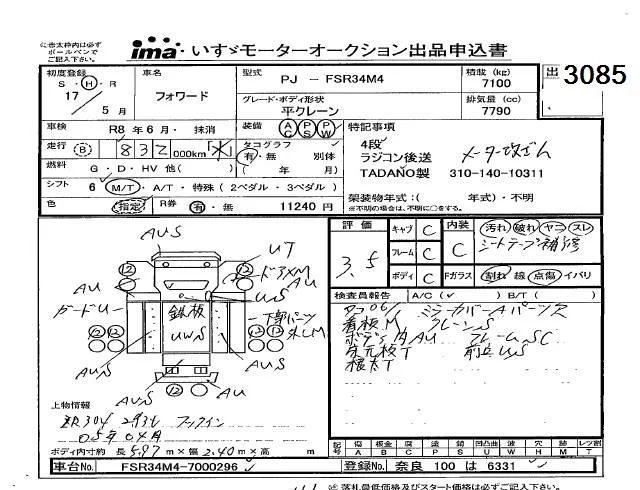 ※赤太枠内は必ず
ボールペンで
ご記入下さい。
ima・いすゞモーターオークション出品申込書
出 3085
初度登録
S・H・R
17
5月
車名
フォワード
型式 PJ - FSR34M4
積載 (kg)
7100
グレード・ボディ形状
平クレーン
排気量 (cc)
7790
車検 R8年6月・抹消
装備 AC PS PW
特記事項
走行 B 832 000km
タコグラフ
有・無 別体
(年 月)
4段
ラジコン後送
TADANO製 310-140-10311
メーター改ざん
燃料 G・D・HV 他( )
シフト 6 M/T・A/T・特殊(2ペダル・3ペダル)
架装物年式:( 年式)・不明
※不明の場合は、不明に○をする。
色 指定 R券 有・無 11240円
評価
3.5
キャブ C 内装 C 汚れ 破れ ヤニ スレ
シートテープ補修
フレーム C
ボディ C Fガラス 割れ 線 点傷 イバリ
検査員報告 A/C(✓) B/T( )
看板M クレーンS
ボディ内AU フレームSC
根太T
AUS
UT
ドアXM
AU
US
AU
ガードU
鉄板
UWS
下部パーツ
外しM
AUS
AUS
AUS
AU
上物情報
ZR304 293h フックイン
05年04月
ボディ内寸 長さ 5.97m×幅 2.40m×高 m
記号 傷A 板金B 腐C 塗P 錆S 凹凸曲U 波W 穴H 跡M 欠T レンタ割
車台No. FSR34M4-7000296
登録No. 奈良 100 は 6331
※ 落札最低価格及びスタート価格をご記入下さい